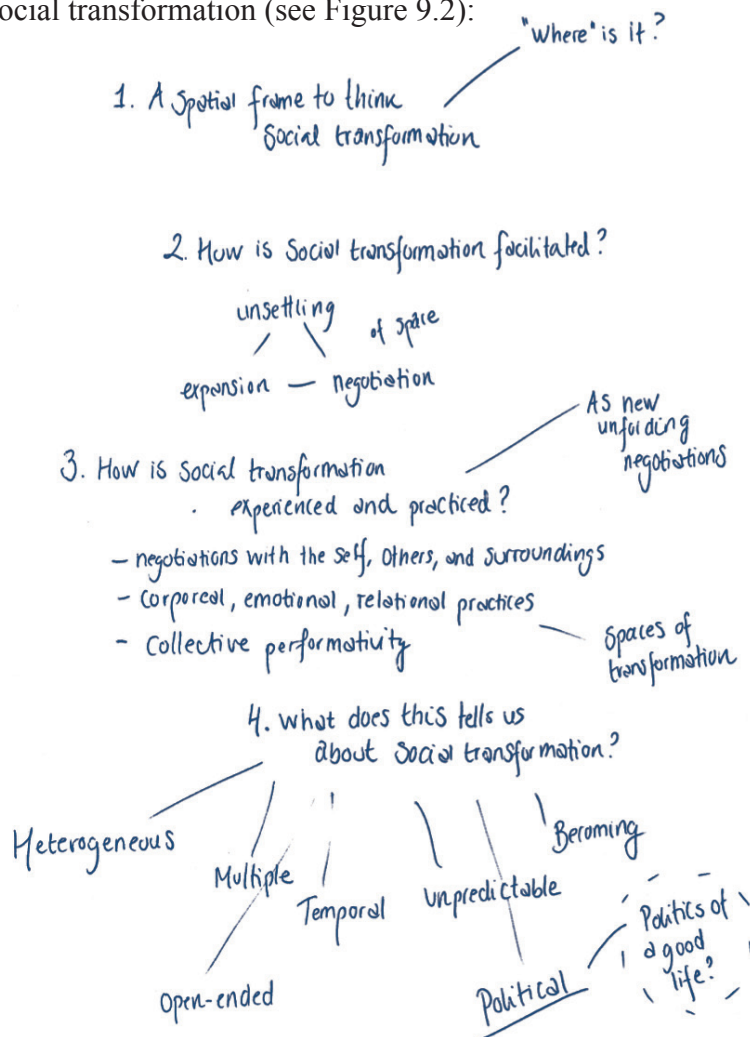 ocial transformation (see Figure 9.2):
"Where" is it?
1. A Spatial frame to think
Social transformation
2. How is Social transformation facilitated?
unsettling
of space
expansion — negotiation
As new
unfolding
negotiations
3. How is social transformation
experienced and practiced?
- negotiations with the self, others, and surroundings
- corporeal, emotional, relational practices
- Collective performativity
Spaces of
transformation
4. What does this tells us
about social transformation?
Heterogeneous
Multiple
Temporal
Unpredictable
Becoming
Open-ended
Political
Politics of
a good
life?